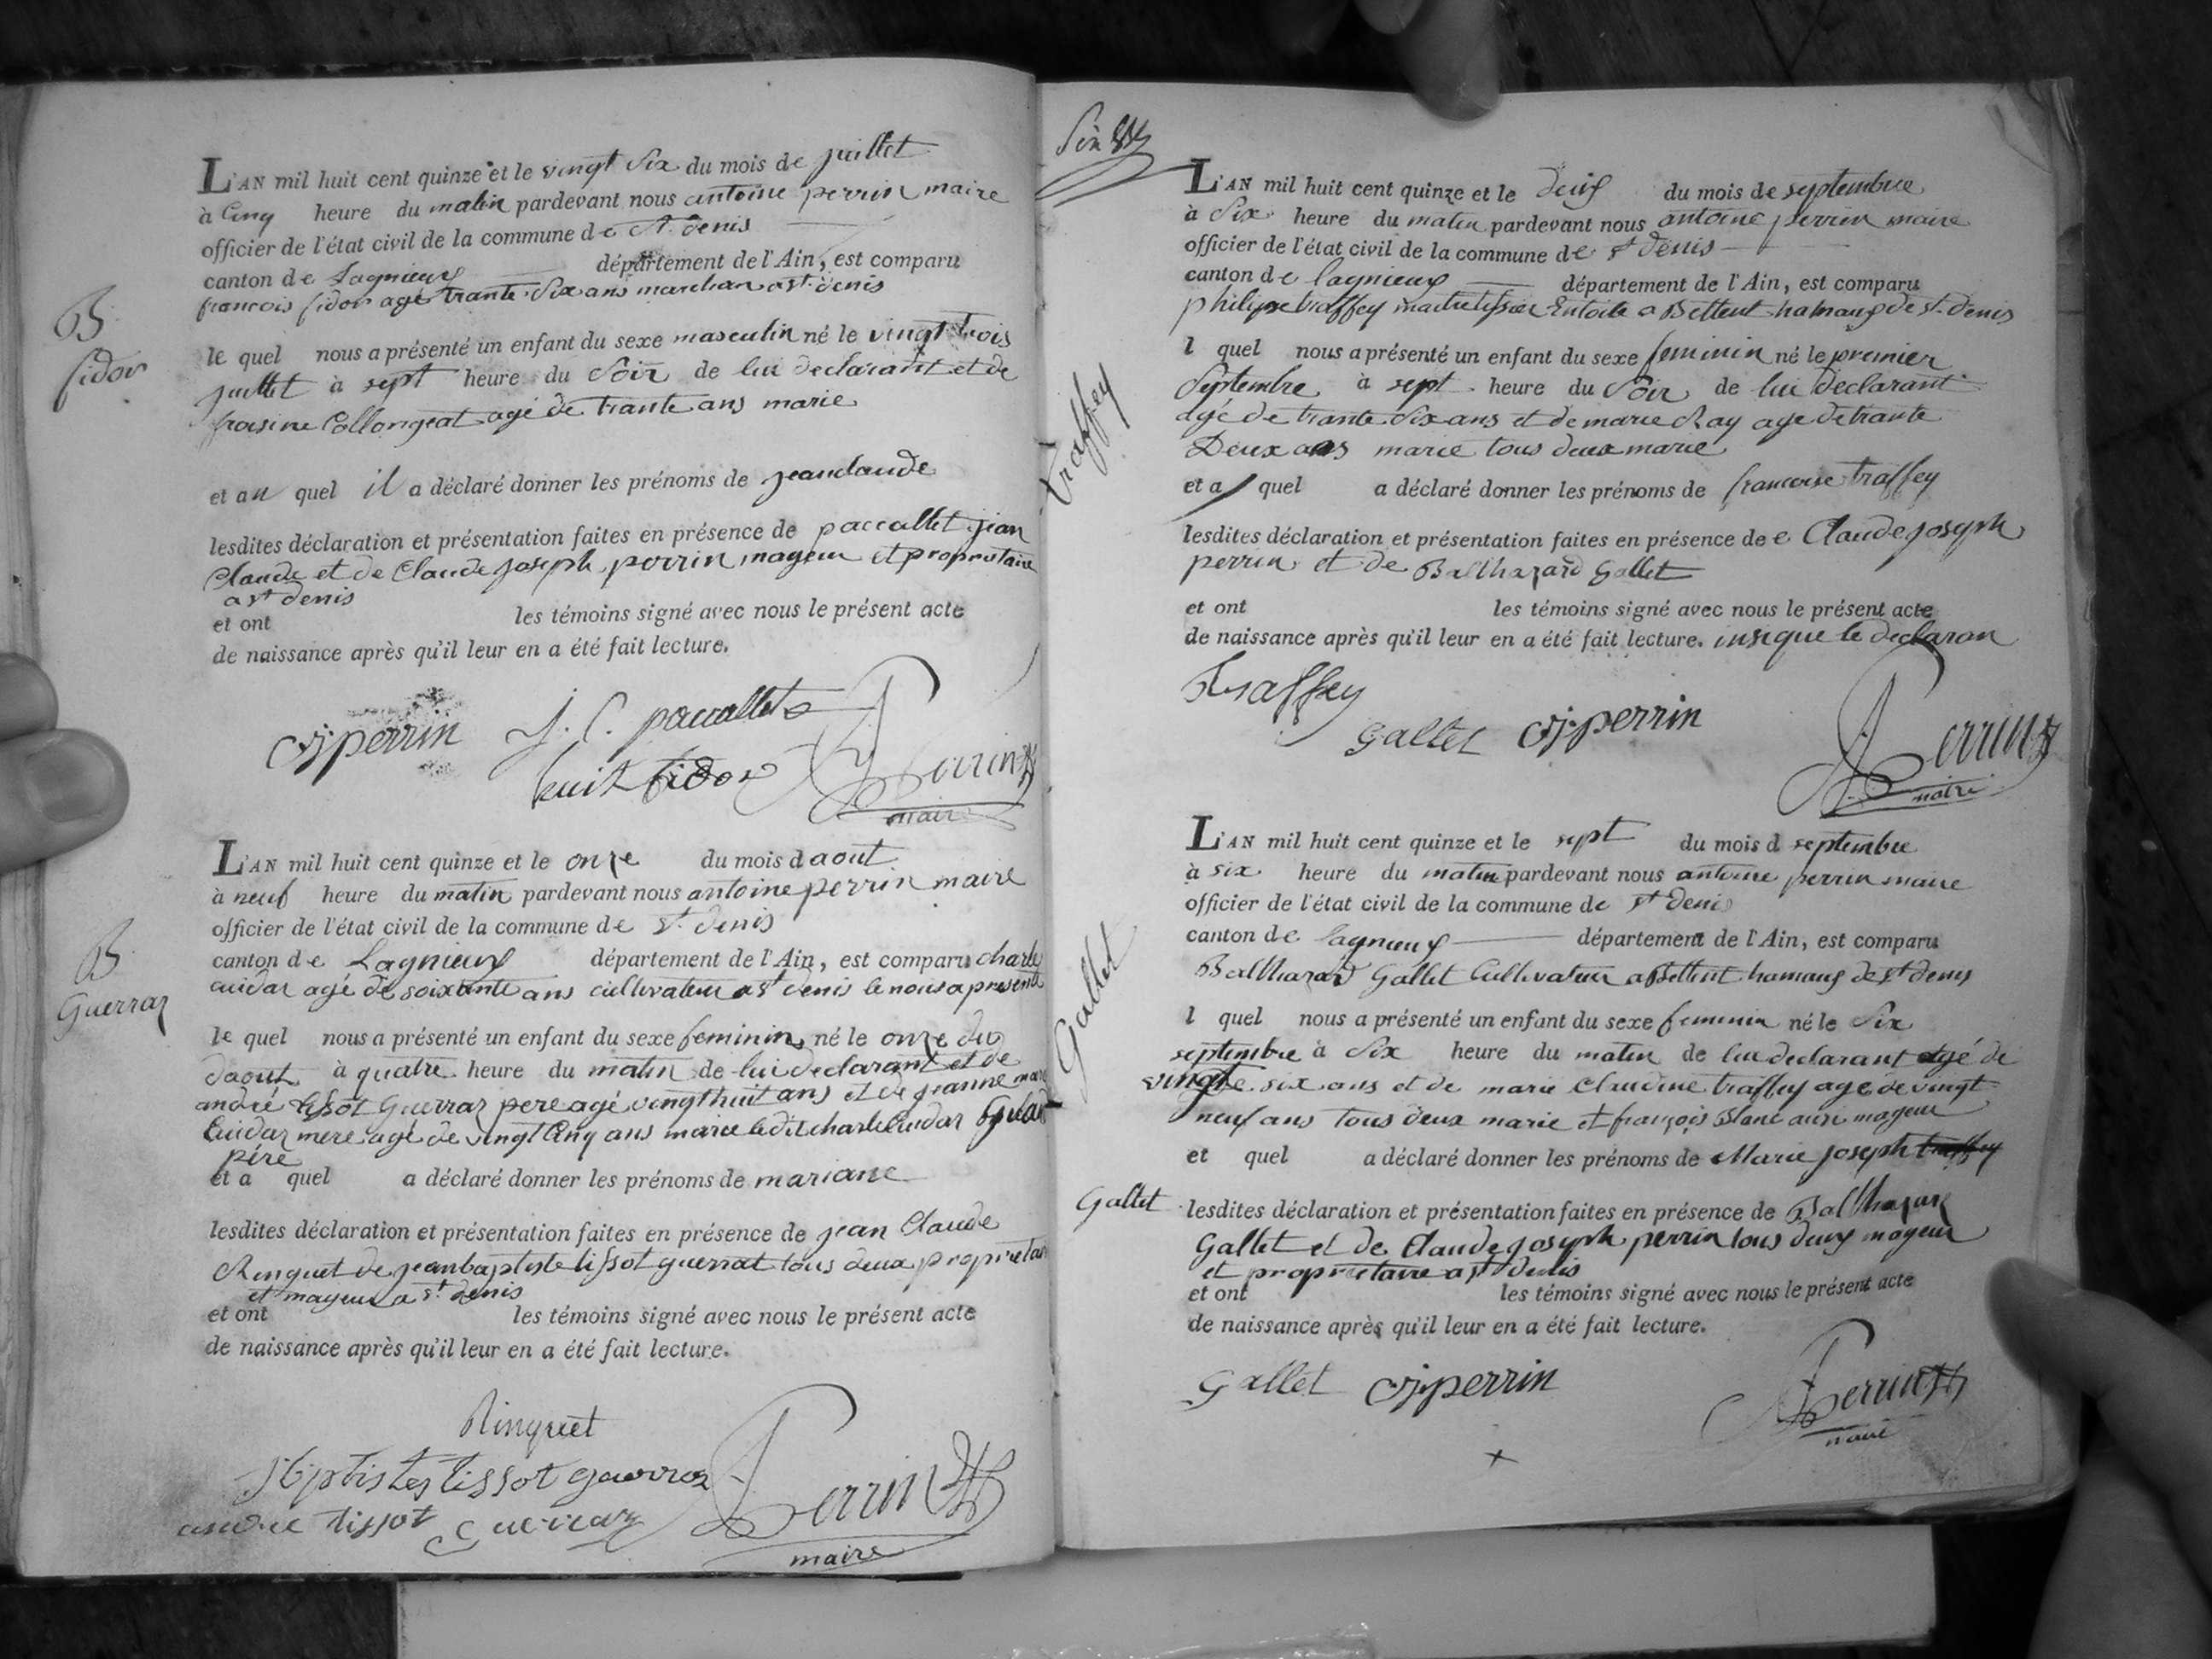 L'AN mil huit cent quinze et le vingt six du mois de juillet
à cinq heure du matin pardevant nous antoine perrin maire
officier de l'état civil de la commune de st denis
canton de Lagnieux département de l'Ain, est comparu
francois fidor agé trante six ans marchan a st denis
B
fidor
le quel nous a présenté un enfant du sexe masculin né le vingt trois
juillet à sept heure du soir de lui declarant et de
frosine Collongeat agé de trante ans marie
et au quel il a déclaré donner les prénoms de jeanclaude
lesdites déclaration et présentation faites en présence de paccallet jean
Claude et de Claude joseph perrin mayeur et proprietaire
a st denis
et ont les témoins signé avec nous le présent acte
de naissance après qu'il leur en a été fait lecture.
cjperrin J. C. paccallet
fidor Perrin
maire
L'AN mil huit cent quinze et le onze du mois d aout
à neuf heure du matin pardevant nous antoine perrin maire
officier de l'état civil de la commune de st denis
canton de Lagnieux département de l'Ain, est comparu charle
cuidar agé de soixante ans cultivateur a st denis le nous a presenté
B
Guerraz
le quel nous a présenté un enfant du sexe feminin né le onze du
daout à quatre heure du matin de lui declarant et de
andré tissot Guerraz pere agé vingt huit ans et de jeanne marie
Cuidaz mere agé de vingt cinq ans marie ledit charle Cuidar
père
et a quel a déclaré donner les prénoms de mariane
lesdites déclaration et présentation faites en présence de jean Claude
Ringuet de jeanbaptiste tissot guerrat tous deux proprietair
et mayeur a st denis
et ont les témoins signé avec nous le présent acte
de naissance après qu'il leur en a été fait lecture.
Ringuet
tissot guerraz
andre tissot Guerraz Perrin
maire
Six
L'AN mil huit cent quinze et le deuf du mois de septembre
à six heure du matin pardevant nous antoine perrin maire
officier de l'état civil de la commune de st denis
canton de lagnieux département de l'Ain, est comparu
philipe traffey maitre tissier Entoile a Bettent hamaux de st denis
traffey
l quel nous a présenté un enfant du sexe feminin né le premier
septembre à sept heure du soir de lui declarant
agé de trante six ans et de marie Ray age de trante
Deux ans marie tous deux marie
et a quel a déclaré donner les prénoms de francoise traffey
lesdites déclaration et présentation faites en présence de e Claude joseph
perrin et de Balthazard Gallet
et ont les témoins signé avec nous le présent acte
de naissance après qu'il leur en a été fait lecture. insi que le declaran
traffey
Gallet cjperrin Perrin
maire
L'AN mil huit cent quinze et le sept du mois d septembre
à six heure du matin pardevant nous antoine perrin maire
officier de l'état civil de la commune de st denis
canton de lagnieux département de l'Ain, est comparu
Balthazard Gallet Cultivateur a Bettent hamaux de st denis
Gallet
l quel nous a présenté un enfant du sexe feminin né le six
septembre à six heure du matin de lui declarant agé de
vingt six ans et de marie claudine traffey age de vingt
neuf ans tous deux marie et françois Blanc mayeur
et quel a déclaré donner les prénoms de Marie joseph traffey
Gallet lesdites déclaration et présentation faites en présence de Balthazar
Gallet et de Claude joseph perrin tous deux mayeur
et propriétaire a st denis
et ont les témoins signé avec nous le présent acte
de naissance après qu'il leur en a été fait lecture.
Gallet cjperrin Perrin
maire